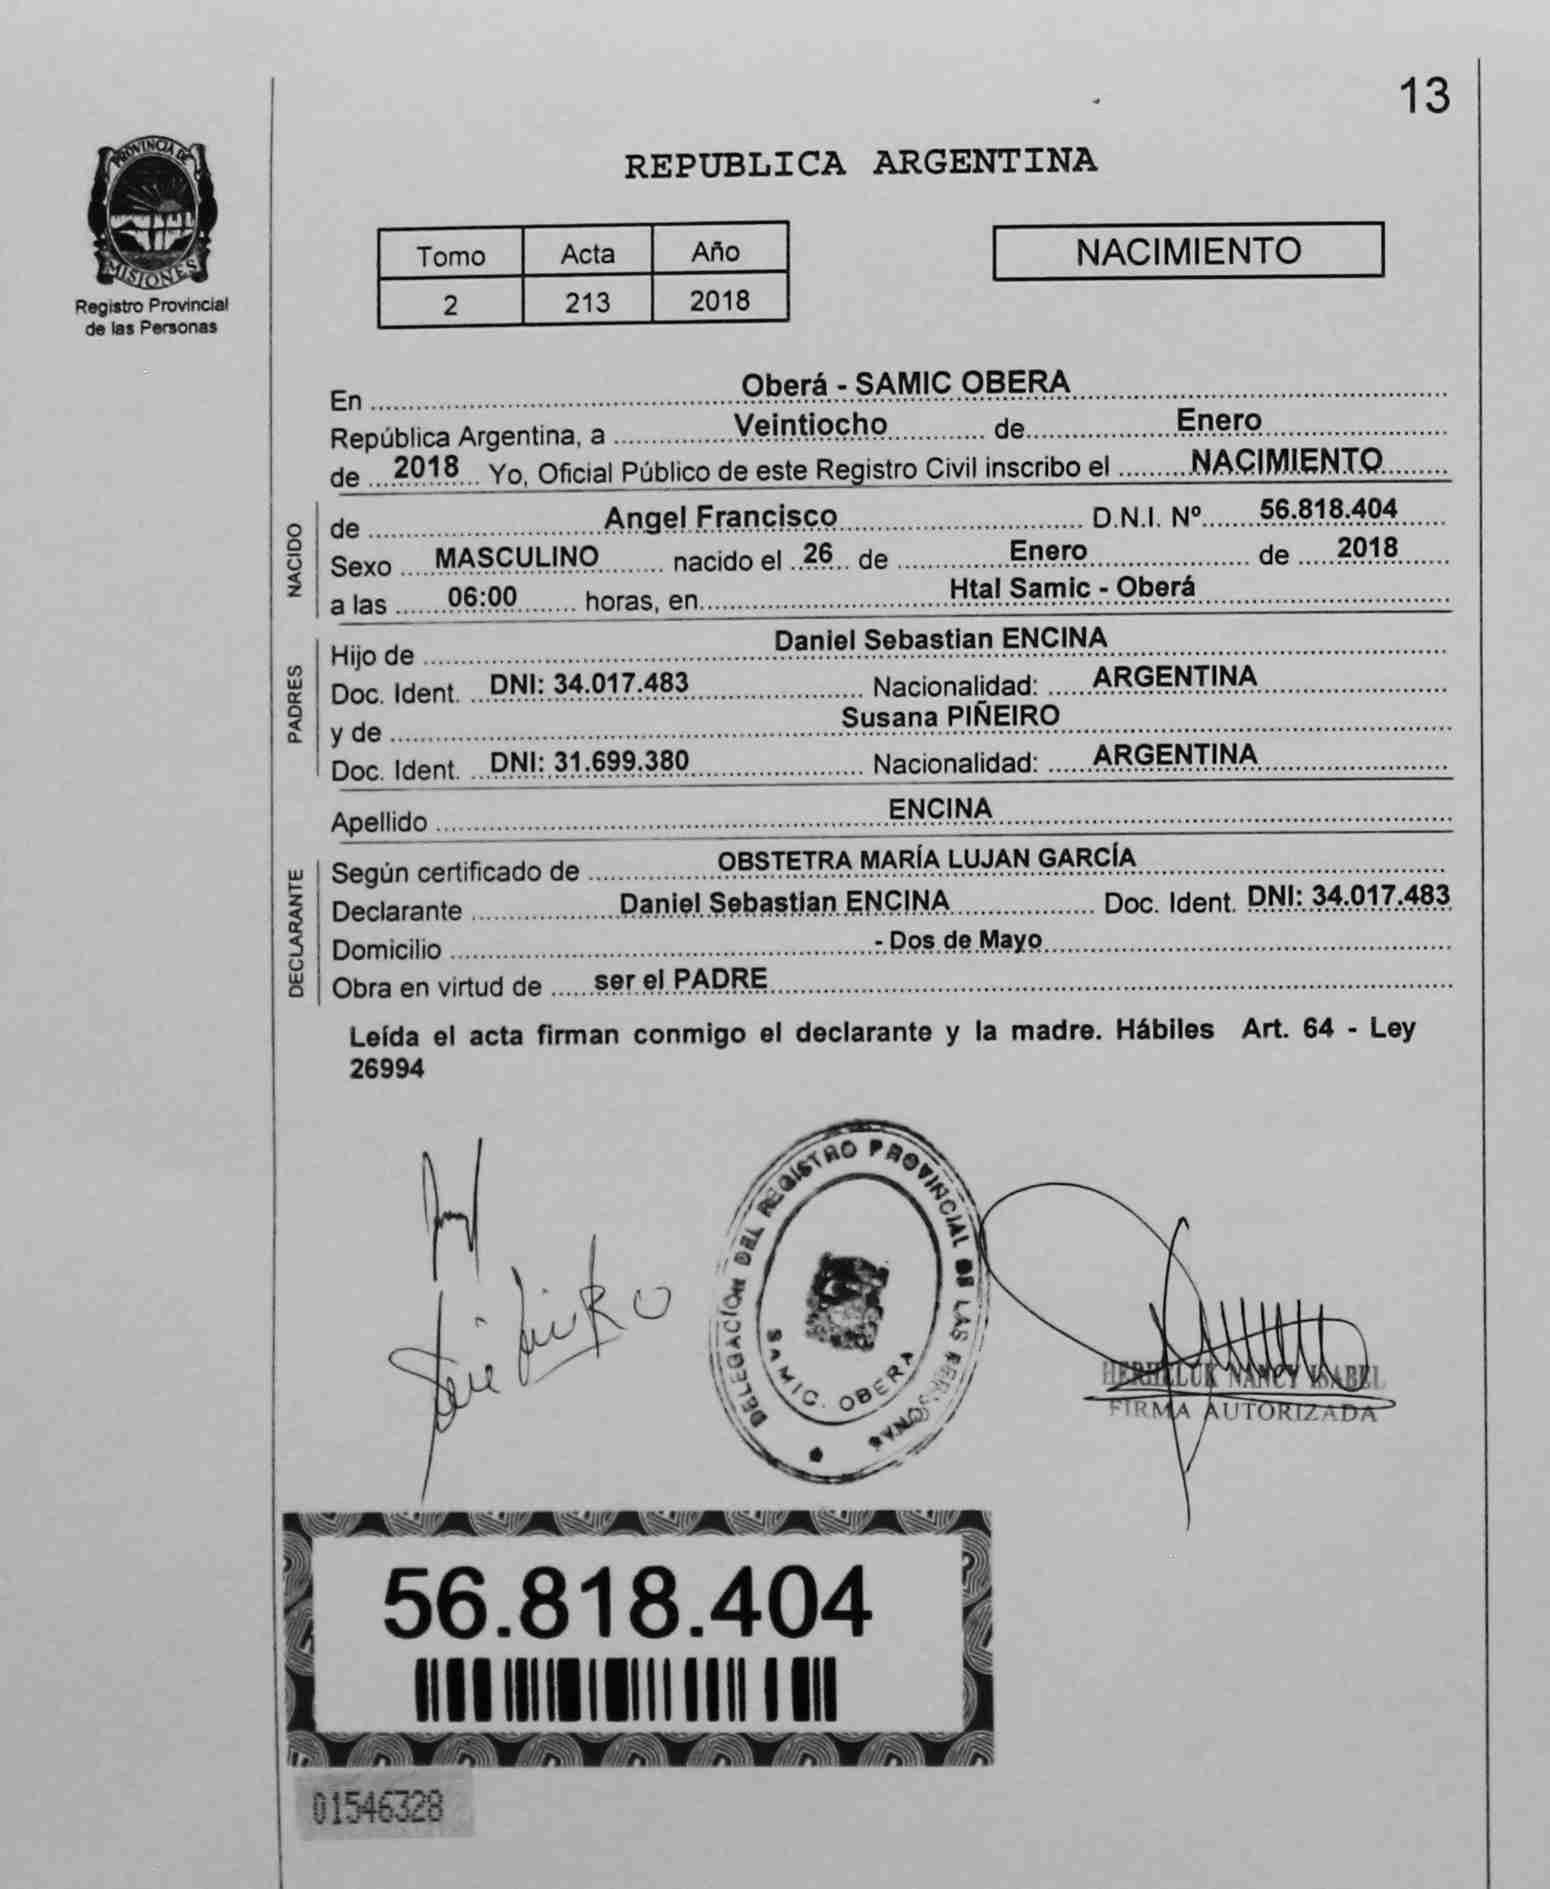 13
PROVINCIA DE
MISIONES
Registro Provincial
de las Personas
REPUBLICA ARGENTINA
Tomo Acta Año
2 213 2018
NACIMIENTO
En Oberá - SAMIC OBERA
República Argentina, a Veintiocho de Enero
de 2018 Yo, Oficial Público de este Registro Civil inscribo el NACIMIENTO
NACIDO
de Angel Francisco D.N.I. Nº 56.818.404
Sexo MASCULINO nacido el 26 de Enero de 2018
a las 06:00 horas, en Htal Samic - Oberá
PADRES
Hijo de Daniel Sebastian ENCINA
Doc. Ident. DNI: 34.017.483 Nacionalidad: ARGENTINA
y de Susana PIÑEIRO
Doc. Ident. DNI: 31.699.380 Nacionalidad: ARGENTINA
Apellido ENCINA
DECLARANTE
Según certificado de OBSTETRA MARÍA LUJAN GARCÍA
Declarante Daniel Sebastian ENCINA Doc. Ident. DNI: 34.017.483
Domicilio - Dos de Mayo
Obra en virtud de ser el PADRE
Leída el acta firman conmigo el declarante y la madre. Hábiles Art. 64 - Ley
26994
DELEGACIÓN DEL REGISTRO PROVINCIAL DE LAS PERSONAS
SAMIC. OBERA
NANCY ISABEL
FIRMA AUTORIZADA
56.818.404
01546328